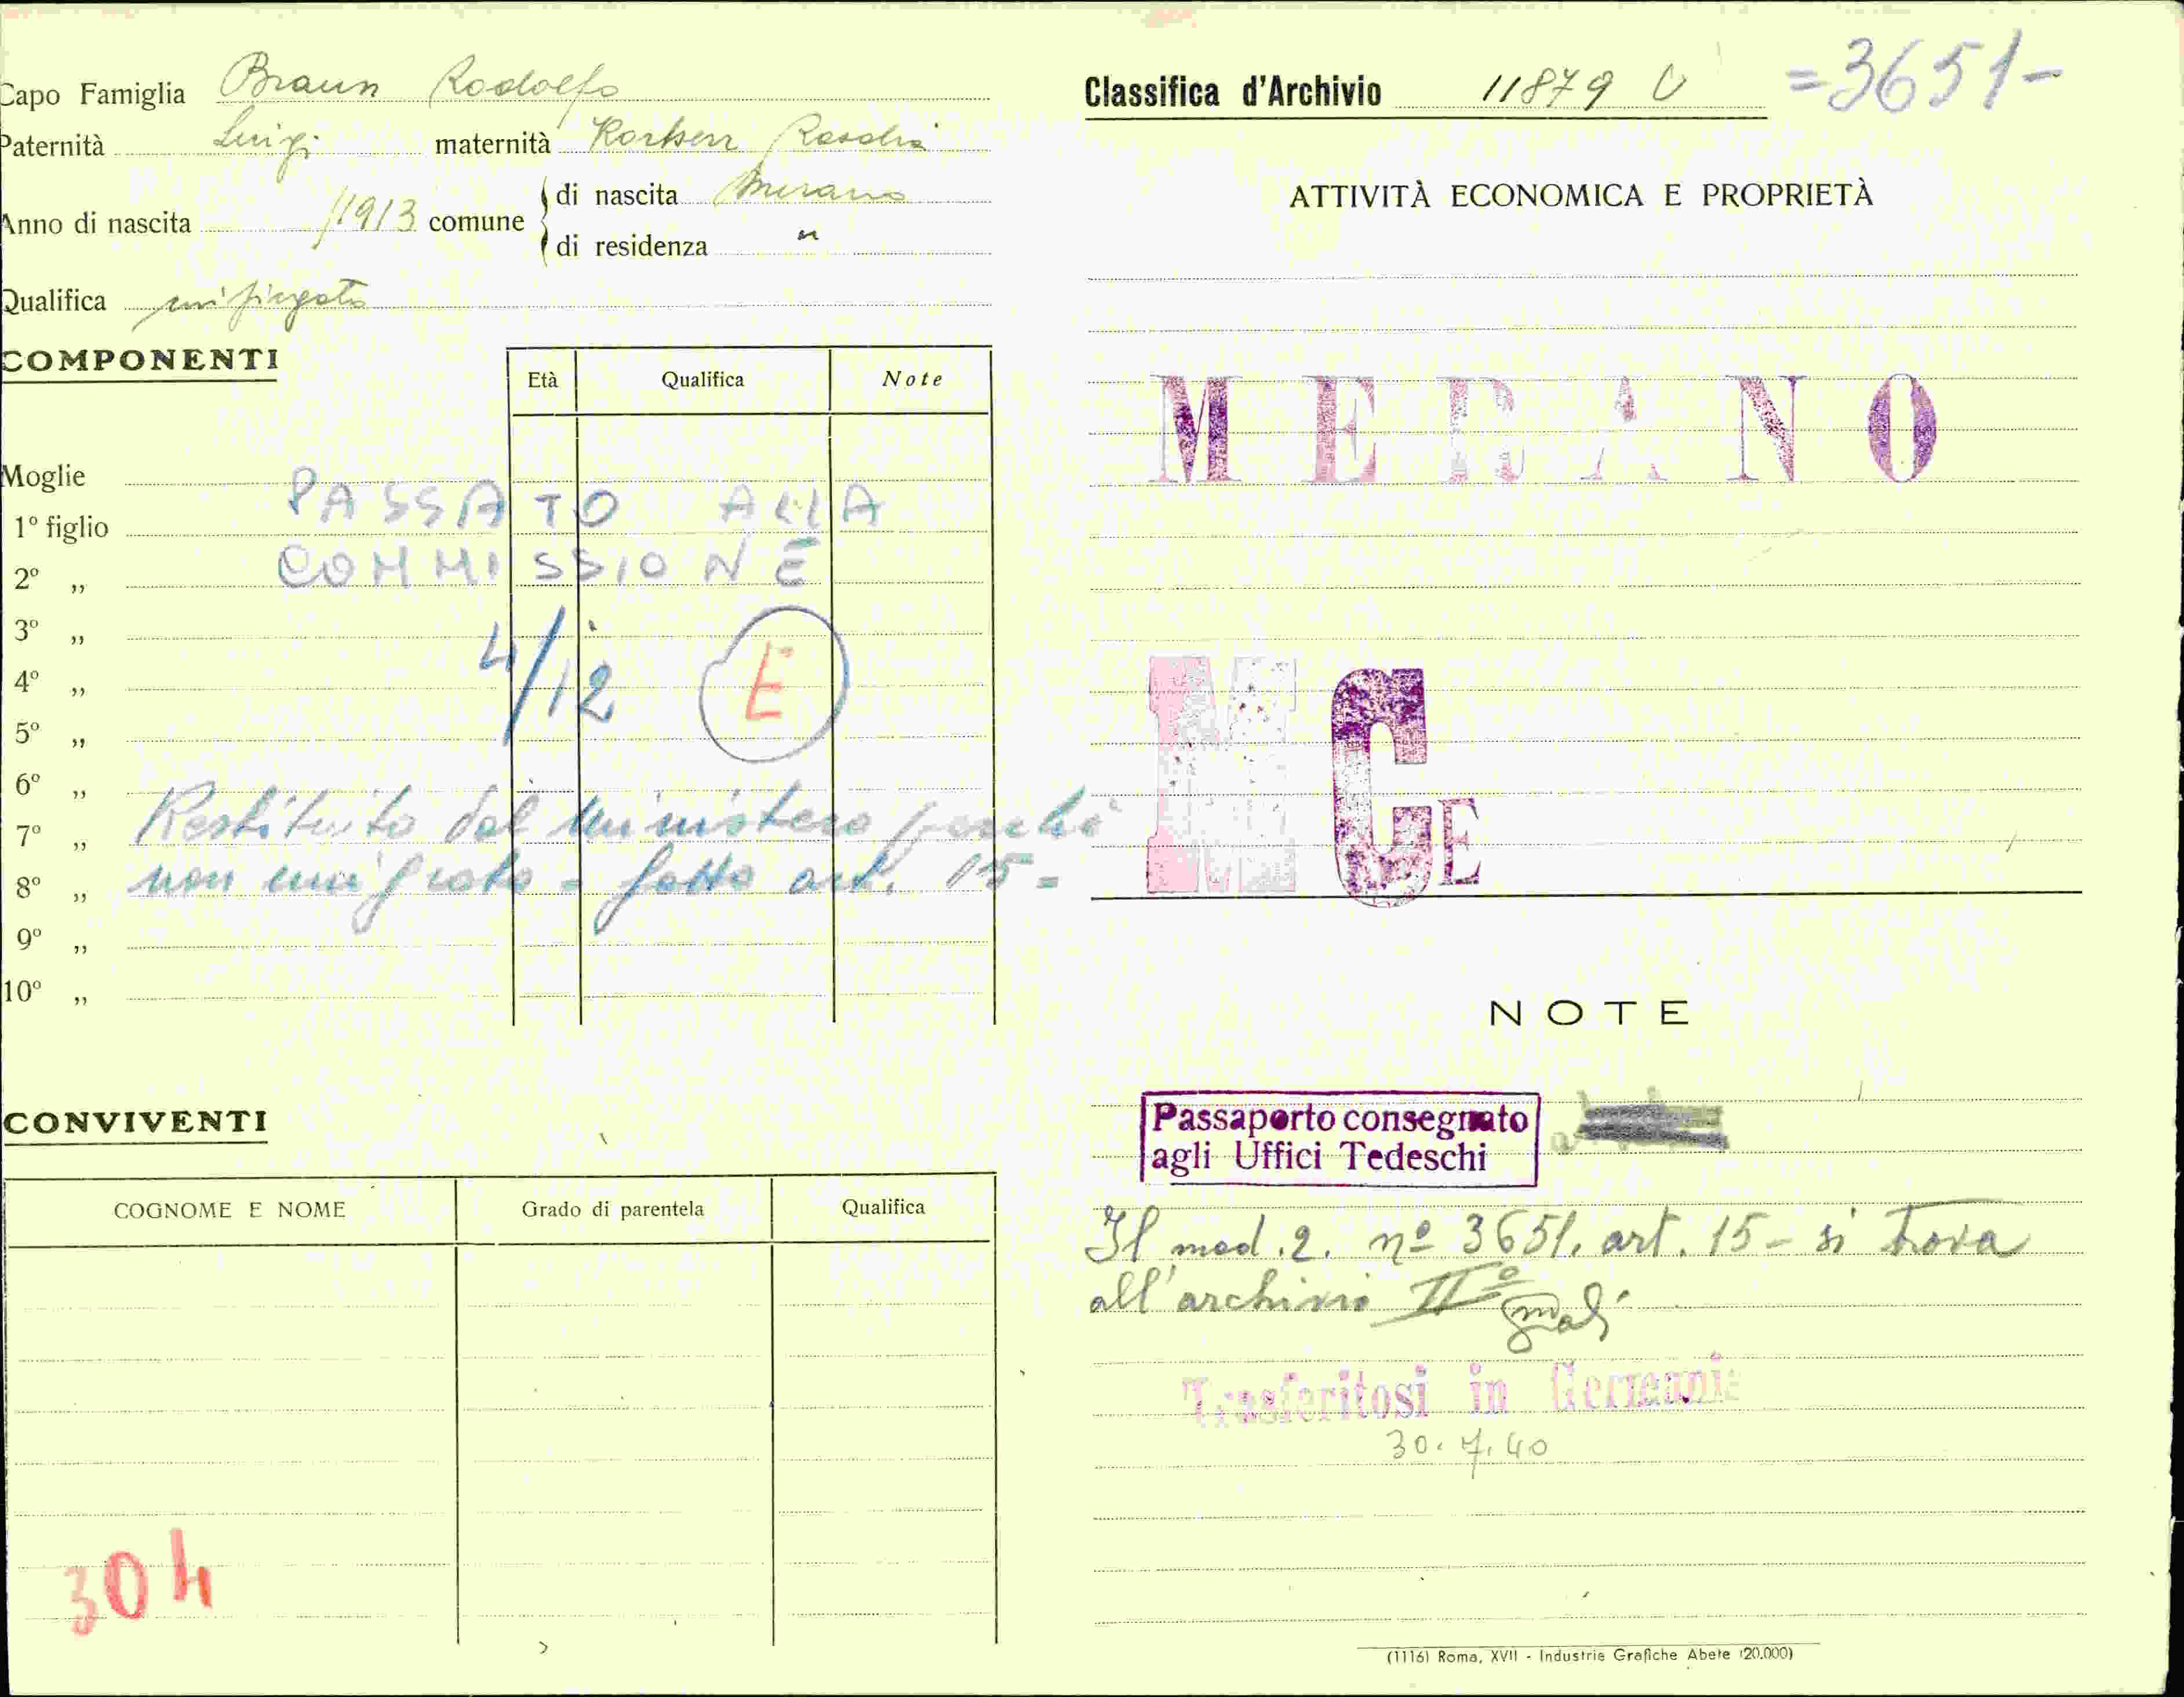 Capo Famiglia Braun Rodolfo
Paternità Luigi maternità Rosalia
Anno di nascita 1913 comune di nascita Merano
di residenza "
Qualifica impiegato
COMPONENTI
Età Qualifica Note
Moglie
1º figlio
2º „
3º „
4º „
5º „
6º „
7º „
8º „
9º „
10º „
PASSATO ALLA
COMMISSIONE
4/12 E
Restituito dal Ministero perché
non emigrato - fatto art. 15 -
CONVIVENTI
COGNOME E NOME Grado di parentela Qualifica
304
Classifica d'Archivio 11879 U =3651-
ATTIVITÀ ECONOMICA E PROPRIETÀ
MERANO
M G E
NOTE
Passaporto consegnato
agli Uffici Tedeschi
Il mod. 2. nº 3651. art. 15 - si trova
all'archivio IIº
Trasferitosi in Germania
30.7.40
(1116) Roma, XVII - Industrie Grafiche Abete (20.000)